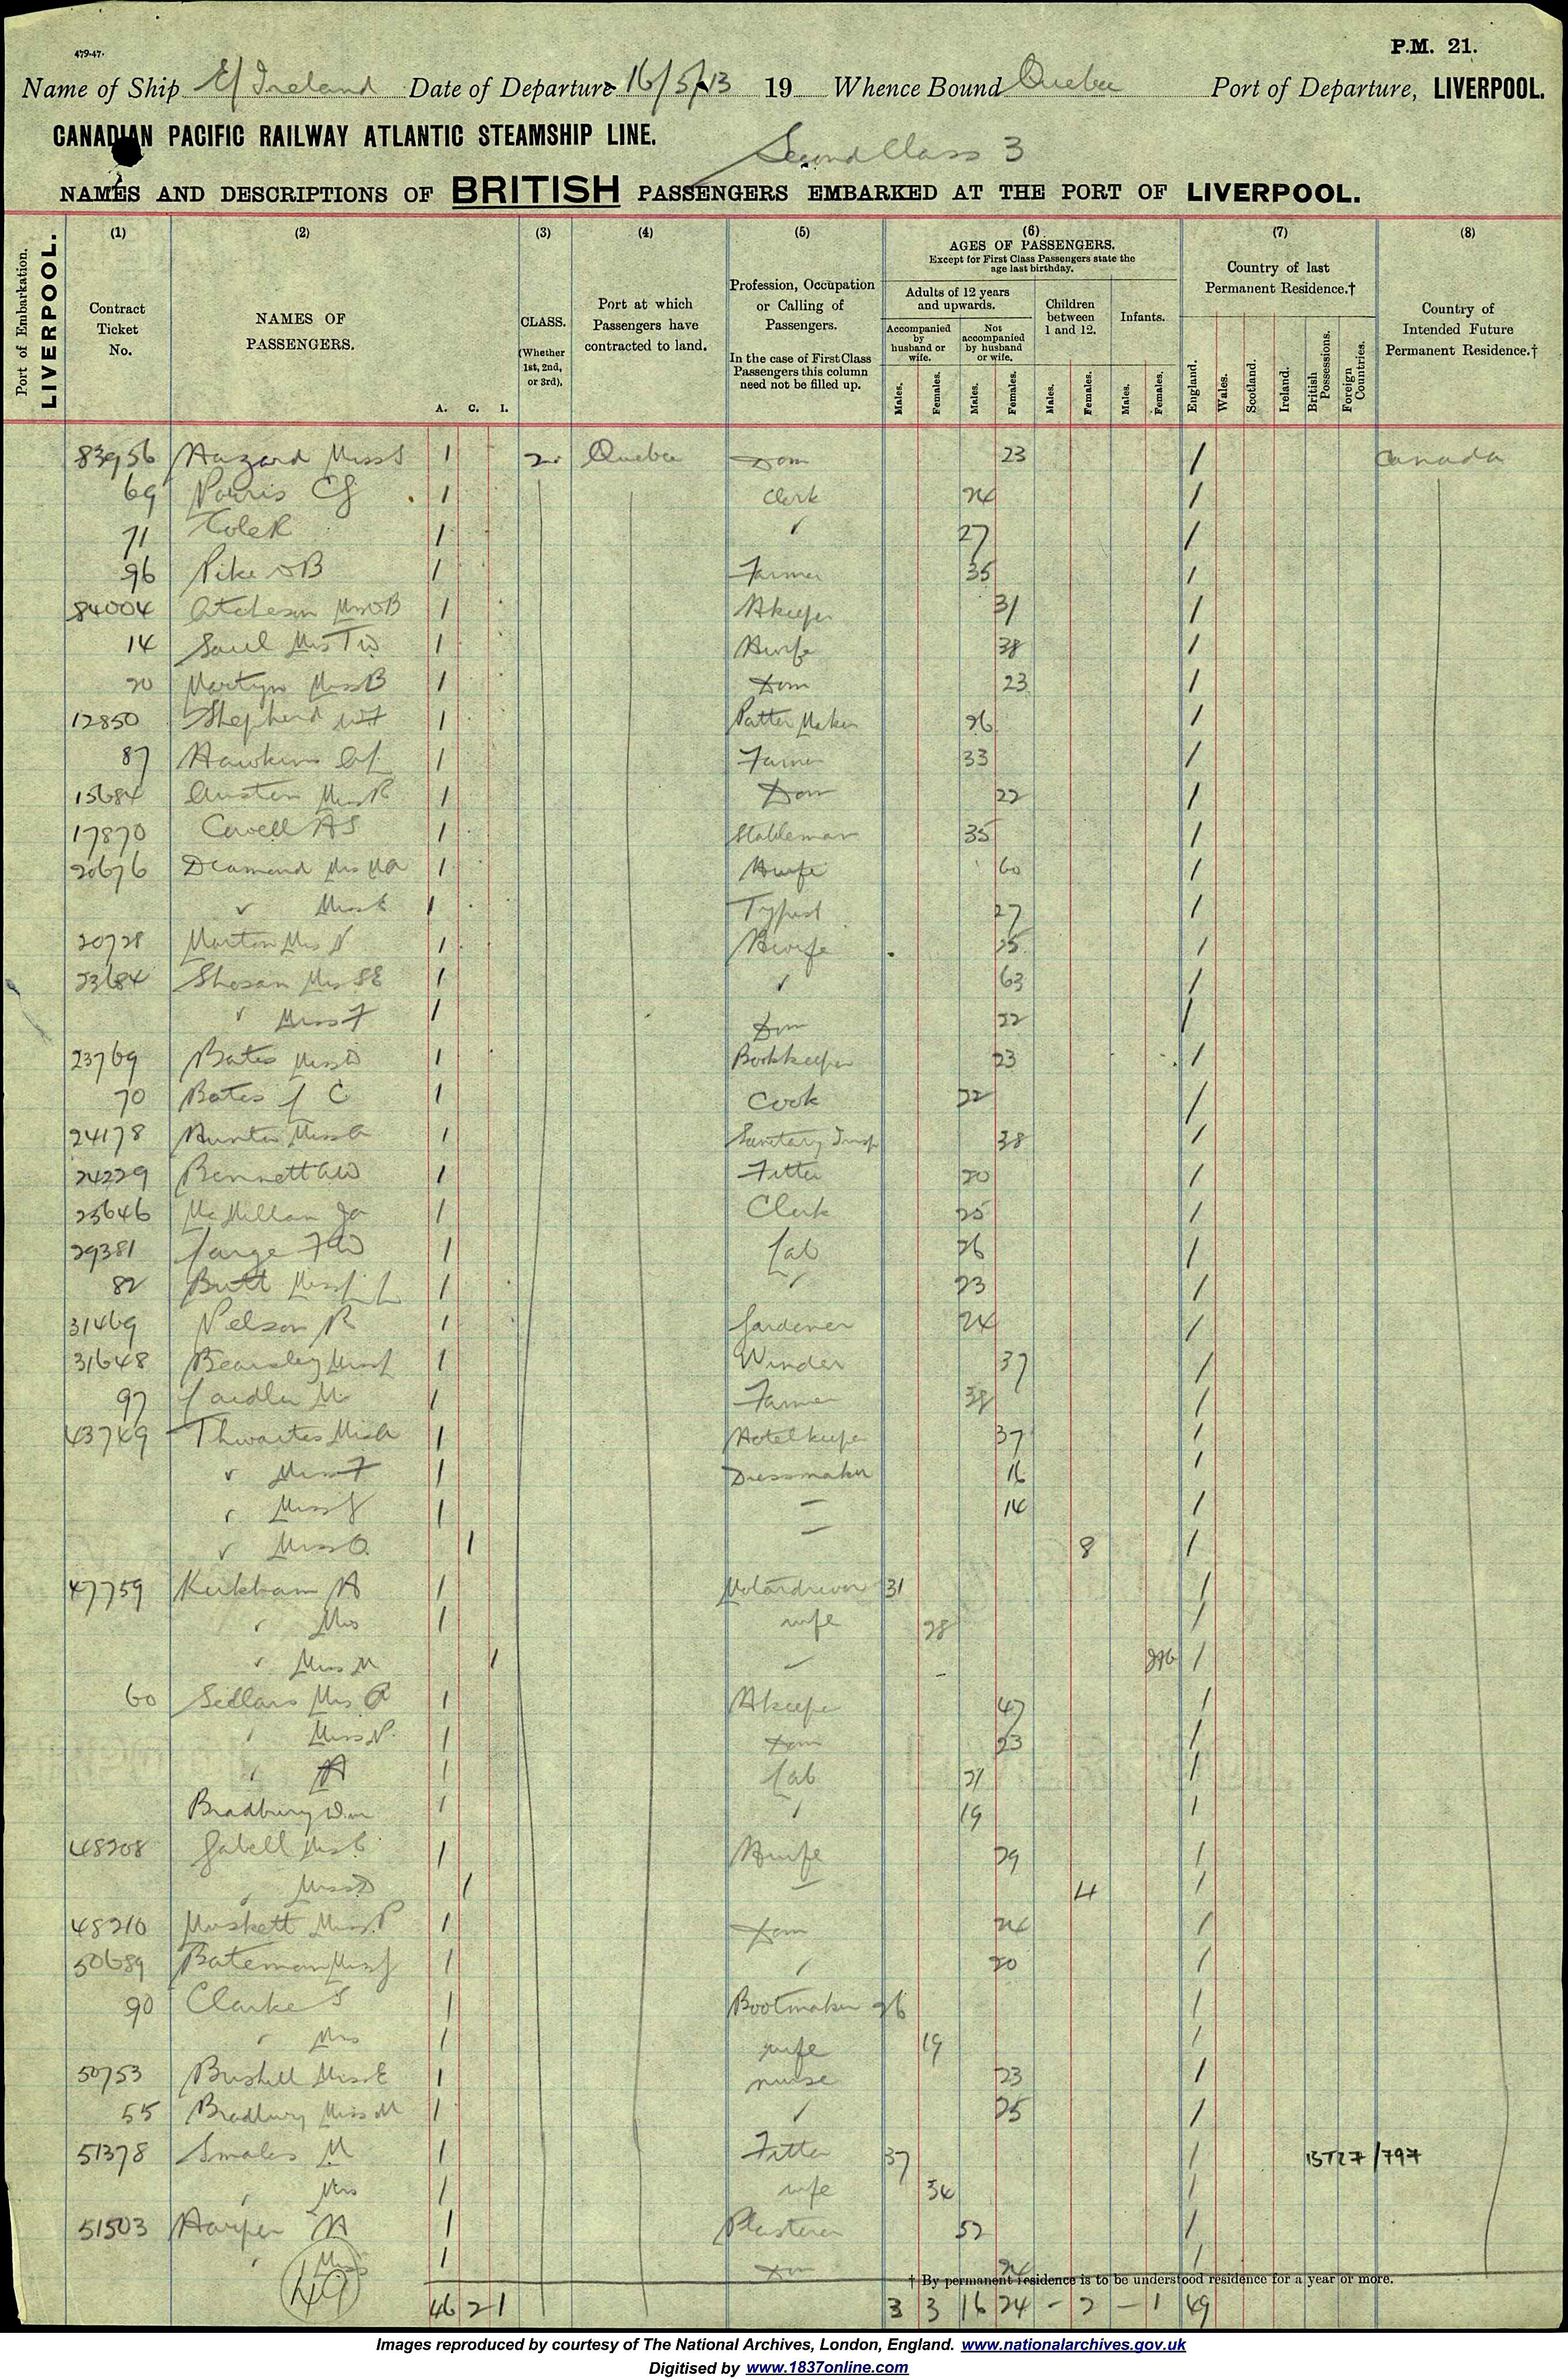 479-47.
P.M. 21.
Name of Ship E/ Ireland Date of Departure 16/5/13 19 Whence Bound Quebec Port of Departure, LIVERPOOL.
CANADIAN PACIFIC RAILWAY ATLANTIC STEAMSHIP LINE.
Second Class 3
NAMES AND DESCRIPTIONS OF BRITISH PASSENGERS EMBARKED AT THE PORT OF LIVERPOOL.
Port of Embarkation. LIVERPOOL.
(1) Contract Ticket No.
(2) NAMES OF PASSENGERS. A. C. I.
(3) CLASS. (Whether 1st, 2nd, or 3rd).
(4) Port at which Passengers have contracted to land.
(5) Profession, Occupation or Calling of Passengers. In the case of First Class Passengers this column need not be filled up.
(6) AGES OF PASSENGERS. Except for First Class Passengers state the age last birthday.
Adults of 12 years and upwards. Children between 1 and 12. Infants.
Accompanied by husband or wife. Not accompanied by husband or wife.
Males. Females. Males. Females. Males. Females. Males. Females.
(7) Country of last Permanent Residence.†
England. Wales. Scotland. Ireland. British Possessions. Foreign Countries.
(8) Country of Intended Future Permanent Residence.†
83956 Hazard Miss S 1 2 Quebec Dom 23 / Canada
69 Norris 1 Clerk 24 /
71 Cole R 1 ✓ 27 /
96 Pike 1 Farmer 35 /
84004 Atcheson 1 Hkeeper 31 /
14 Saul Mrs T W 1 Hwife 38 /
20 Martyn Miss B 1 Dom 23 /
12850 Shepherd 1 Patter Maker 26 /
87 Hawkins 1 Farmer 33 /
15684 Austen Miss R 1 Dom 22 /
17870 Cowell A S 1 Stableman 35 /
20676 Diamond Mrs 1 Hwife 60 /
" Miss E 1 Typist 27 /
20728 Morton Mrs N 1 Hwife 25 /
23684 Shosan Mrs S E 1 ✓ 63 /
" Miss F 1 Dom 22 /
23769 Bates Miss D 1 Bookkeeper 23 /
70 Bates J C 1 Cook 22 /
24178 Hunter Miss A 1 Sanitary Insp 38 /
24229 Bennett A W 1 Fitter 20 /
25646 McMillan Ja 1 Clerk 25 /
29381 Large F W 1 Lab 26 /
82 Butt 1 ✓ 23 /
31469 Nelson R 1 Gardener 24 /
31648 Bearsley Miss 1 Winder 37 /
97 M 1 Farmer 38 /
43749 Thwaites Mrs A 1 Hotelkeeper 37 /
" Miss F 1 Dressmaker 16 /
" Miss J 1 — 14 /
" Miss O 1 — 8 /
47759 Kirkham A 1 Motordriver 31 /
" Mrs 1 wife 28 /
" Miss M 1 /
60 Sellars Mrs A 1 Hkeeper 47 /
" Miss N. 1 Dom 23 /
" A 1 Lab 21 /
Bradbury Wm 1 ✓ 19 /
48208 Gabell Mrs E 1 Hwife 29 /
" Miss D 1 — 4 /
48210 Muskett Miss P 1 Dom 24 /
50689 Bateman Miss J 1 ✓ 20 /
90 Clarke S 1 Bootmaker 26 /
" Mrs 1 wife 19 /
50753 Bushell Miss E 1 nurse 23 /
55 Bradbury Miss M 1 ✓ 25 /
51378 Smales M 1 Fitter 37 / BT27/797
" Mrs 1 wife 34 /
51503 Harper A 1 Plasterer 52 /
" Miss 1 Dom 24 /
† By permanent residence is to be understood residence for a year or more.
49 46 2 1 3 3 16 24 - 2 - 1 49
Images reproduced by courtesy of The National Archives, London, England. www.nationalarchives.gov.uk
Digitised by www.1837online.com